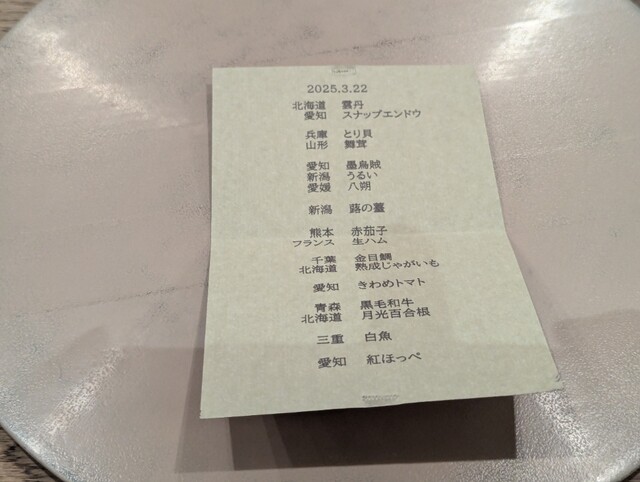 2025.3.22
北海道 雲丹
愛知 スナップエンドウ
兵庫 とり貝
山形 舞茸
愛知 墨烏賊
新潟 うるい
愛媛 八朔
新潟 蕗の薹
熊本 赤茄子
フランス 生ハム
千葉 金目鯛
北海道 熟成じゃがいも
愛知 きわめトマト
青森 黒毛和牛
北海道 月光百合根
三重 白魚
愛知 紅ほっぺ